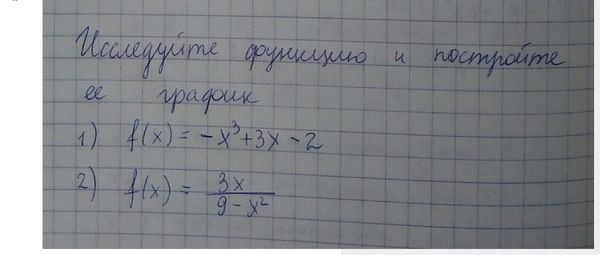 Исследуйте функцию и постройте
ее график
1) f(x) = -x³+3x-2
2) f(x) = 3x/(9-x²)